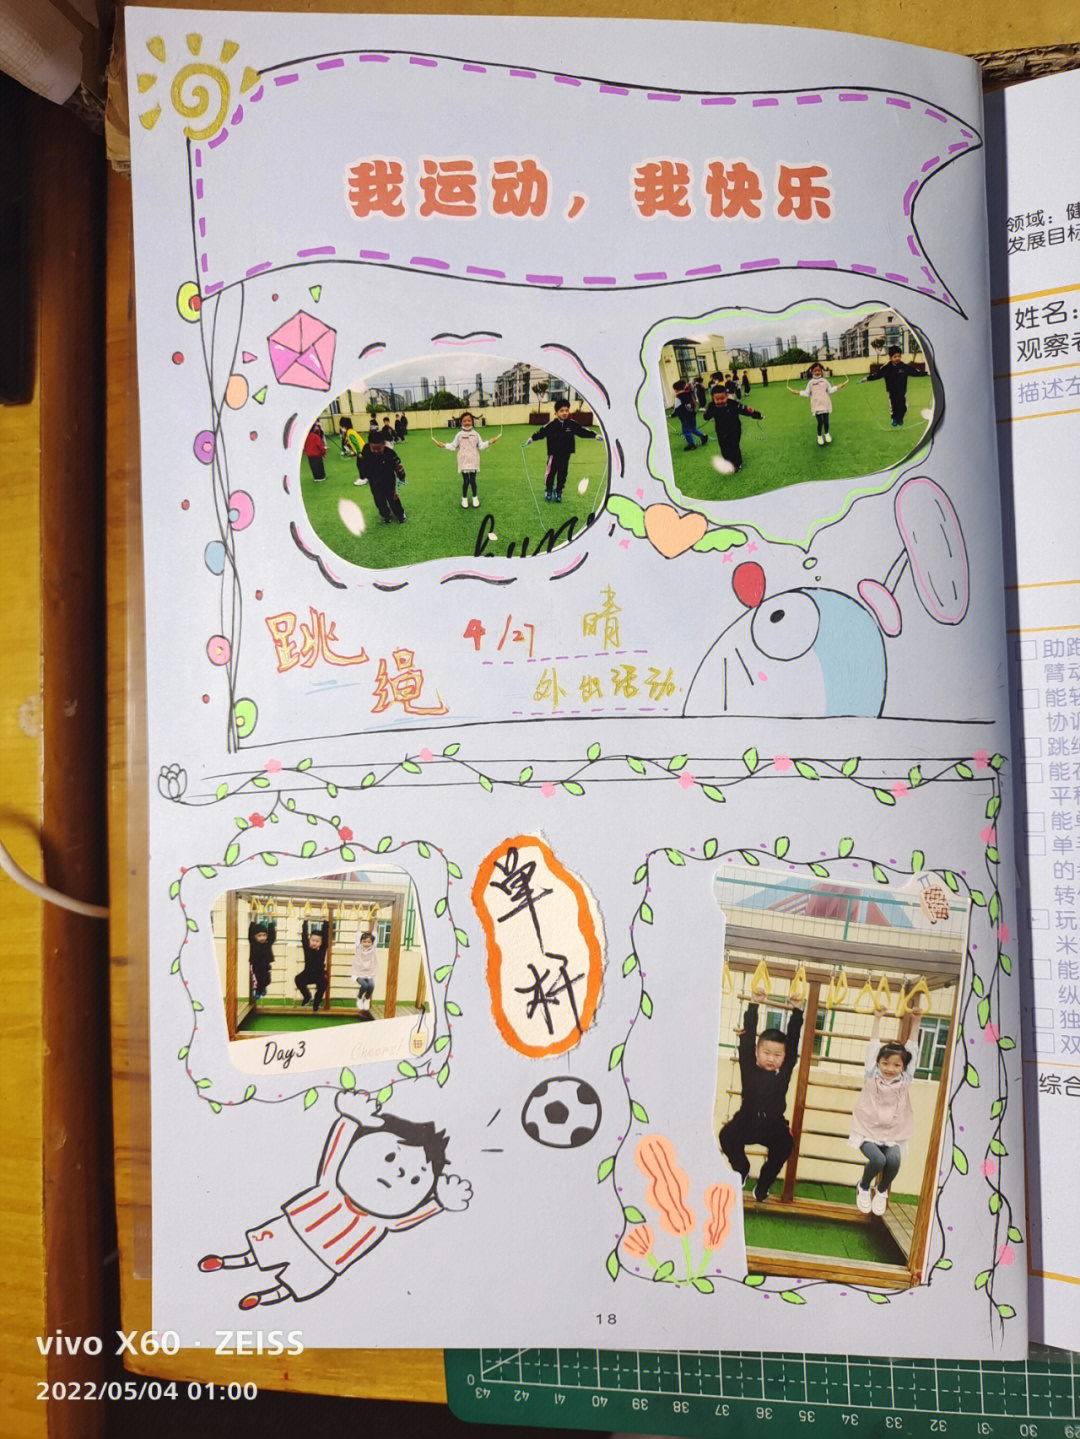 我运动，我快乐
跳绳
4/27 晴
外出活动.
单杠
Day3
Cheers!
18
领域：健
发展目标
姓名：
观察者
描述左
助跑
臂动
能轻
协调
跳绳
能在
平稳
能单
单手
的
转
玩
米
能
纵
独
双
综合
vivo X60 · ZEISS
2022/05/04 01:00
0
43 42 41 40 39 38 37 36 35 34 33 32 31 30 29